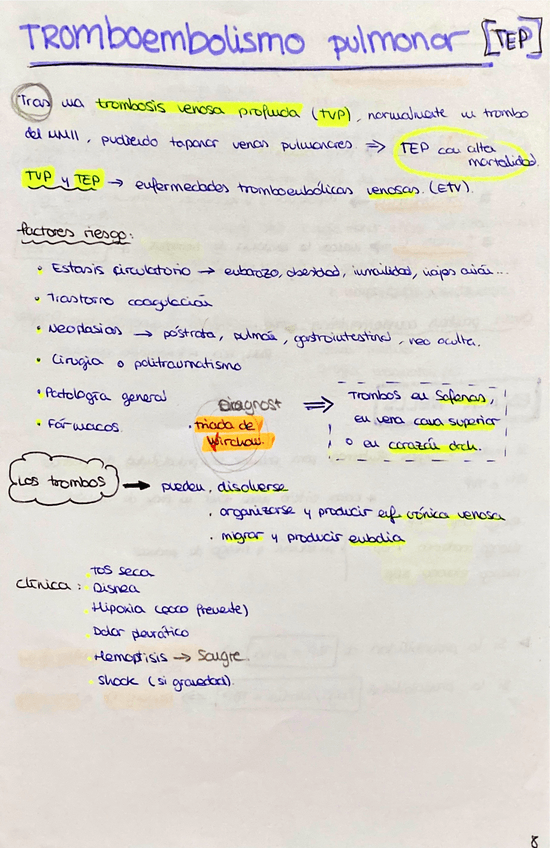 Tromboembolismo pulmonar [TEP]
Tras una trombosis venosa profunda (TVP), normalmente un trombo
del MMII, pudiendo taponar venas pulmonares ⇒ TEP con alta
mortalidad.
TVP y TEP → enfermedades tromboembólicas venosas. (ETV).
Factores riesgo:
• Estasis circulatorio → embarazo, obesidad, inmovilidad, viajes avión...
• Trastorno coagulación
• Neoplasias → próstata, pulmón, gastrointestinal, neo oculta.
• Cirugía o politraumatismo
• Patología general
• Fármacos.
Diagnost
• triada de
Wirchow.
⇒ Trombos en Safenas,
en vena cava superior
o en corazón drch.
Los trombos → pueden . disolverse
. organizarse y producir enf. crónica venosa
. migrar y producir embolia
Clínica:
• Tos seca
• Disnea
• Hipoxia (poco frecuente)
• Dolor pleurático
• Hemoptisis → Sangre.
• Shock (si gravedad).
8